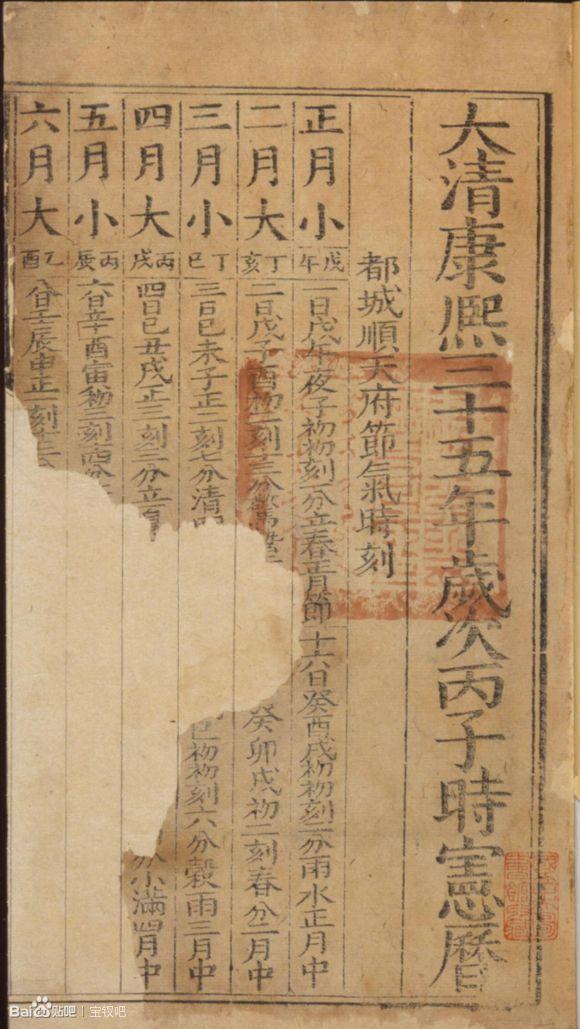 大清康熙三十五年歲次丙子時憲曆
都城順天府節氣時刻
正月小 戊午 一日戊午夜子初初刻一分立春正月節十六日癸酉戌初初刻二分雨水正月中
二月大 丁亥 二日戊子酉初一刻三分驚蟄 癸卯戌初二刻春分二月中
三月小 丁巳 三日己未子正一刻七分清明 巳初初刻六分穀雨三月中
四月大 丙戌 四日己丑戌正三刻二分立 分小滿四月中
五月小 丙辰 六日辛酉寅初二刻
六月大 乙酉 八日壬辰申正一刻
Baidu贴吧 | 宝钗吧